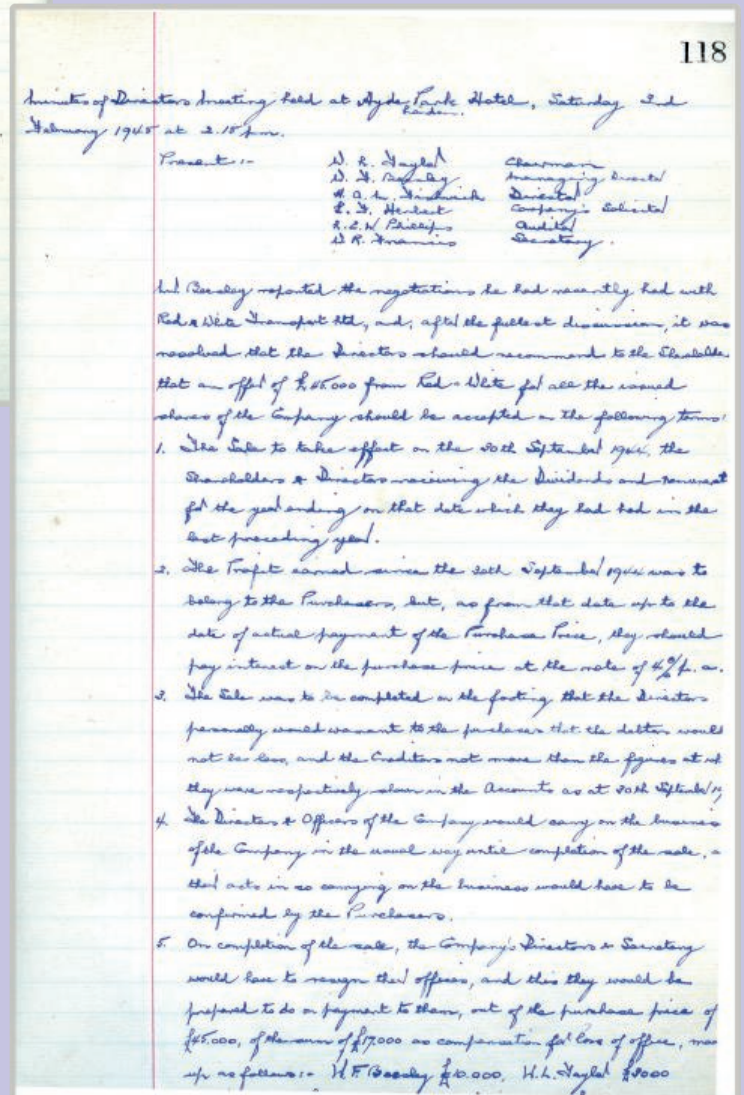 118
Minutes of Directors Meeting held at Hyde Park Hotel, Saturday 3rd
London.
February 1945 at 2.15 pm.
Present :- W. L. Taylor Chairman
W. F. Beesley Managing Director
Director
L. F. Herbert Company's Solicitor
R. E. W Phillips Auditor
W R. Francis Secretary.
Mr Beesley reported the negotiations he had recently had with
Red & White Transport Ltd, and, after the fullest discussion, it was
resolved that the Directors should recommend to the Shareholde
that an offer of £45.000 from Red & White for all the issued
shares of the Company should be accepted on the following terms:
1. The Sale to take effect on the 30th September 1944, the
Shareholders & Directors receiving the Dividends and remunerat
for the year ending on that date which they had had in the
last preceding year.
2. The Profit earned since the 30th September 1944 was to
belong to the Purchasers, but, as from that date up to the
date of actual payment of the Purchase Price, they should
pay interest on the purchase price at the rate of 4% p. a.
3. The Sale was to be completed on the footing that the Directors
personally would warrant to the purchasers that the debtors would
not be less, and the Creditors not more than the figures at wh
they were respectively shown in the Accounts as at 30th September 19
4. The Directors & Officers of the Company would carry on the business
of the Company in the usual way until completion of the sale, a
their acts in so carrying on the business would have to be
confirmed by the Purchasers.
5. On completion of the sale, the Company's Directors & Secretary
would have to resign their offices, and this they would be
prepared to do on payment to them, out of the purchase price of
£45.000, of the sum of £17.000 as compensation for loss of office, mad
up as follows :- W.F. Beesley £10.000, W.L. Taylor